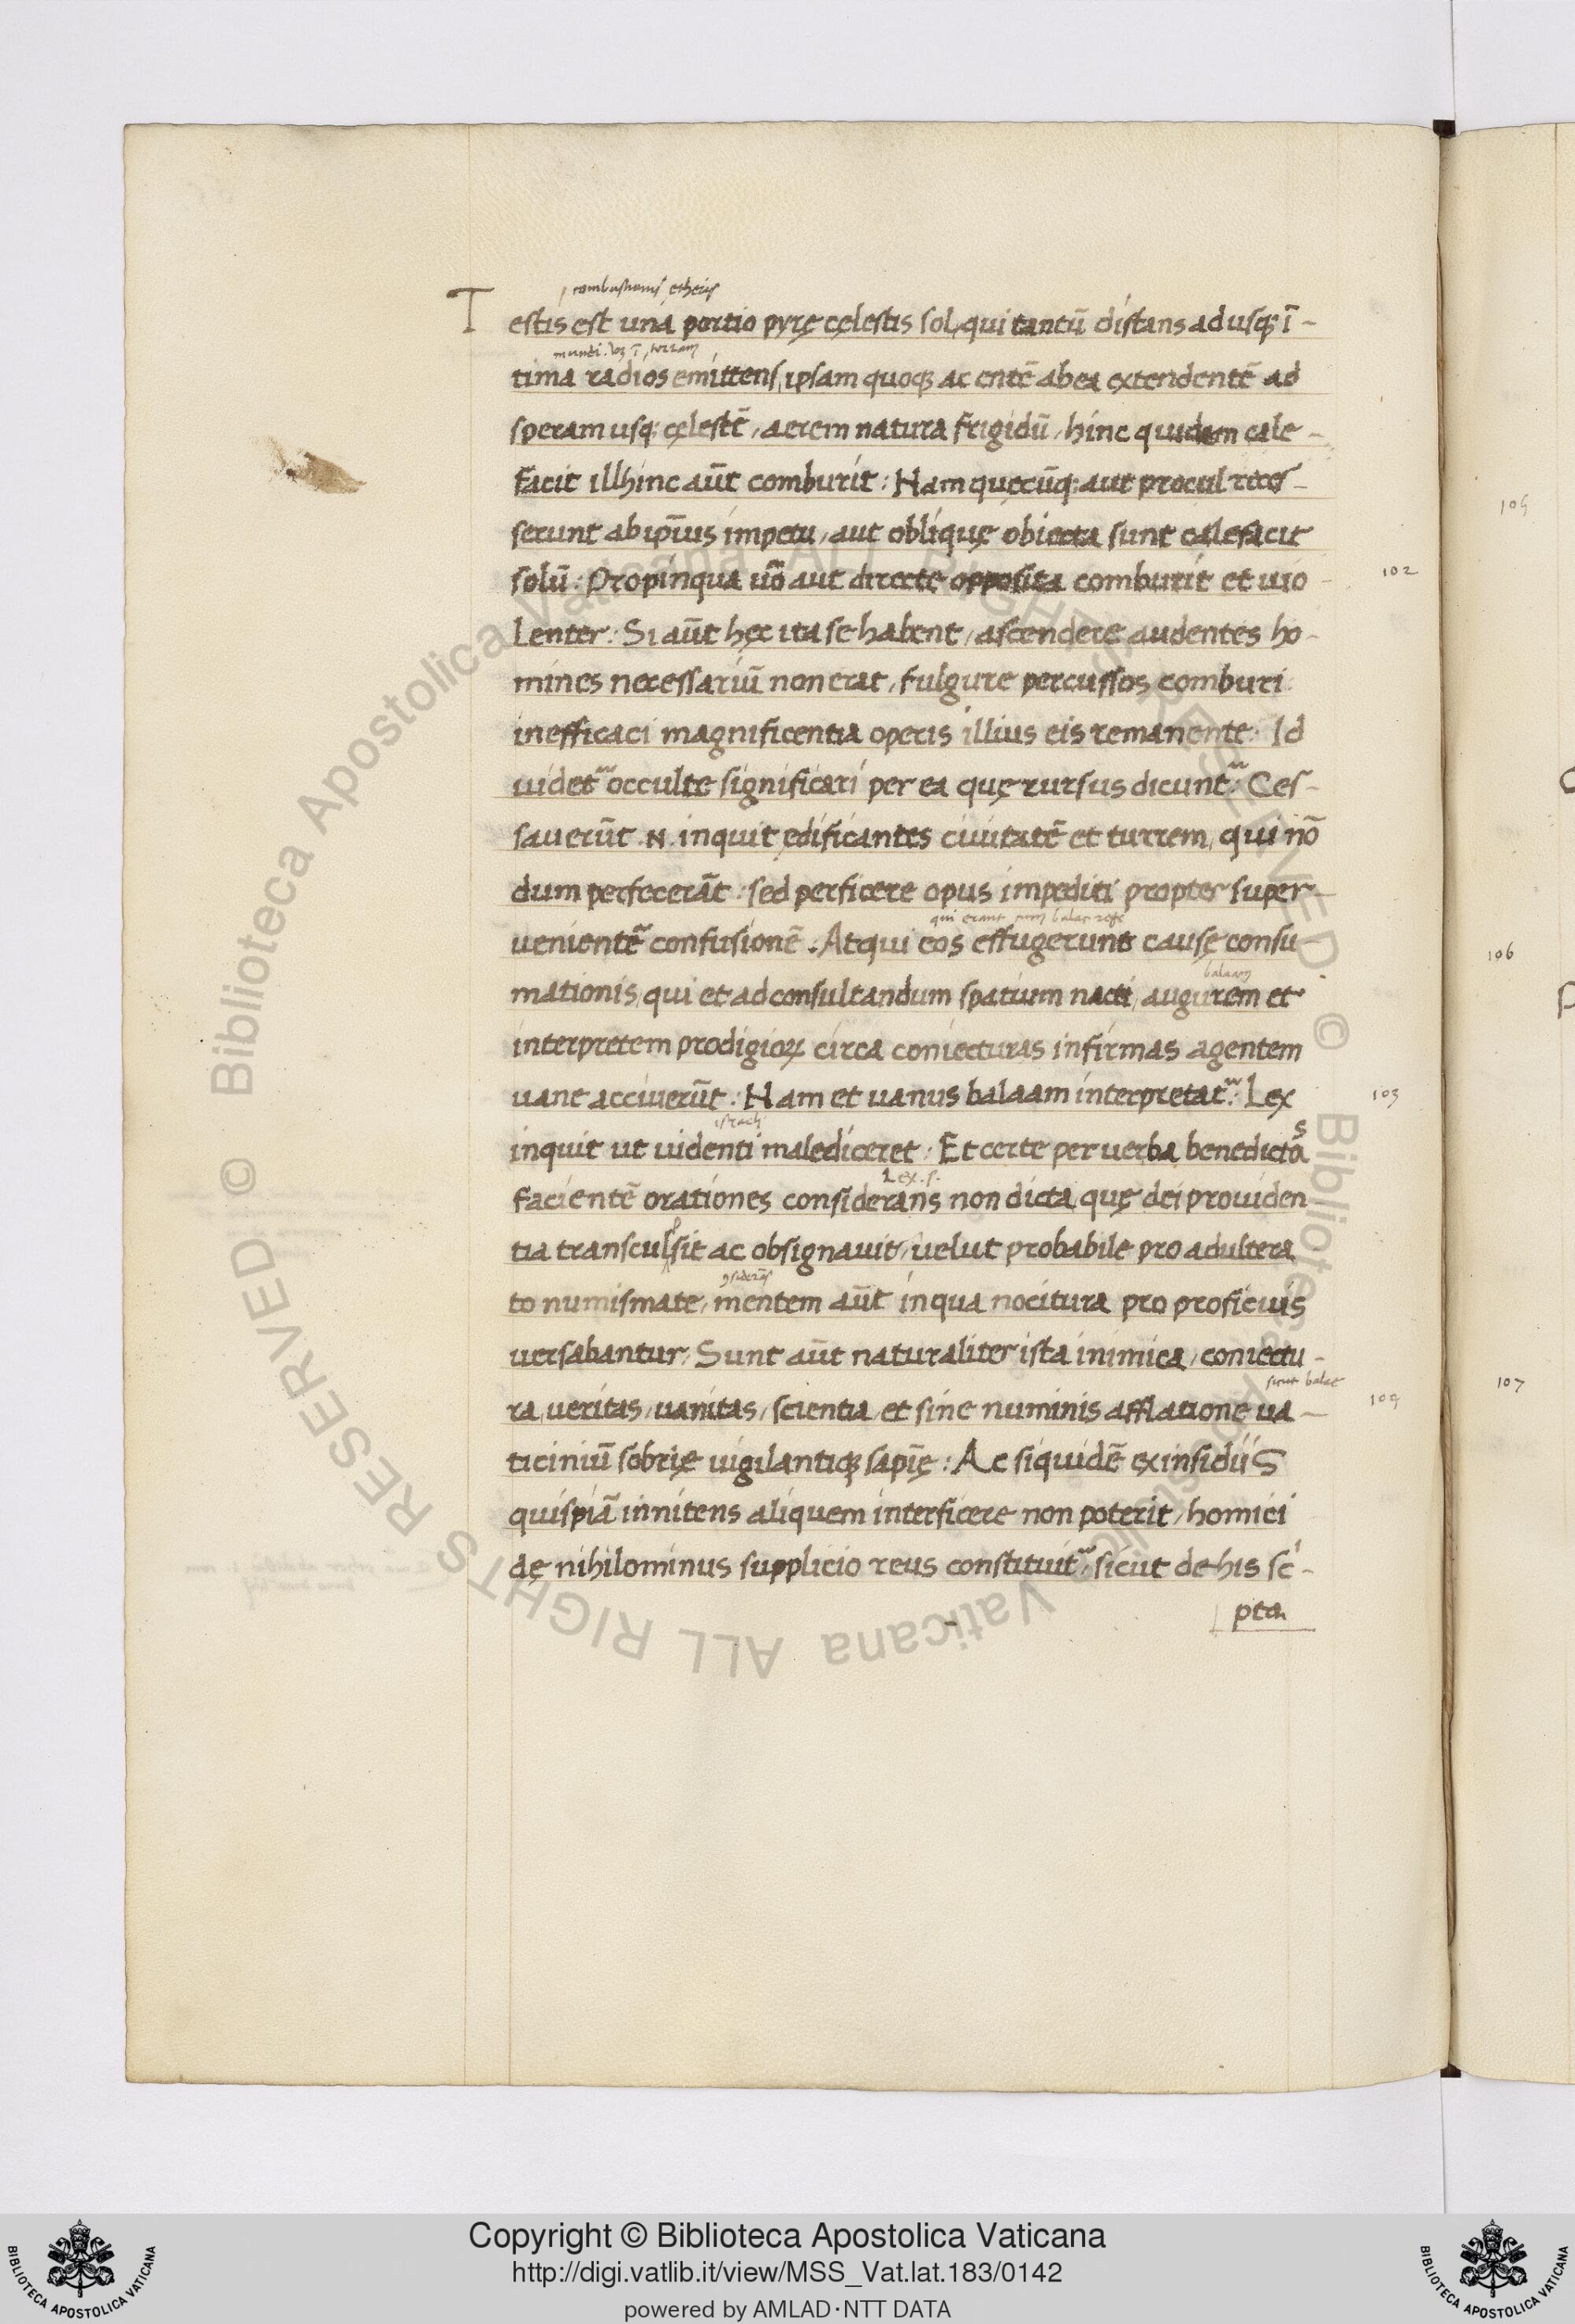 combustionis etheris
Testis est una portio pyrę cęlestis sol, qui tantū distans ad usq; ī-
tima radios emittens, ipsam quoq; ac entē ab ea extendentē ad
speram usq; cęlestē, aerem natura frigidū, hinc quidem cale-
facit illhinc aūt comburit: Nam quęcūq; aut procul reces-
serunt ab ipīus impetu, aut oblique obiecta sunt calefacit
solū: Propinqua uō aut directe opposita comburit et uio- 102
lenter: Si aūt hęc ita se habent, ascendere audentes ho-
mines necessariū non erat, fulgure percussos comburi
inefficaci magnificentia operis illius eis remanente: Id
uidet᷑ occulte significari per ea quę rursus dicunt᷑: Ces-
sauerūt .N. inquit ędificantes ciuitatē et turrem, qui nō
dum perfecerāt: sed perficere opus impediti propter super-
qui erant cum balac rege
uenientē confusionē. Atqui eos effugerunt causę consu-
balaam
mationis, qui et ad consultandum spatium nacti, augurem et
interpretem prodigioꝝ circa coniecturas infirmas agentem
uane acciuerūt: Nam et uanus balaam interpretat᷑: Lex 103
israel
inquit ut uidenti malediceret: Et certe per uerba benedictas
Lex .s.
facientē orationes considerans non dicta, quę dei prouiden
tia transculpsit ac obsignauit, uelut probabile pro adultera
ꝯsiderās
to numismate, mentem aūt in qua nocitura pro proficuis
uersabantur, Sunt aūt naturaliter ista inimica, coniectu-
sicut balac
ra, ueritas, uanitas, scientia, et sine numinis afflatione ua- 104
ticiniū sobrię uigilantiq; sapīę: Ac siquidē ex insidiis
quispiā innitens aliquem interficere non poterit, homici
dę nihilominus supplicio reus constituit᷑, sicut de his sc'-
pta
105
106
107
Copyright © Biblioteca Apostolica Vaticana
http://digi.vatlib.it/view/MSS_Vat.lat.183/0142
powered by AMLAD·NTT DATA
BIBLIOTECA APOSTOLICA VATICANA
BIBLIOTECA APOSTOLICA VATICANA
© Biblioteca Apostolica Vaticana ALL RIGHTS RESERVED © Biblioteca Apostolica Vaticana ALL RIGHTS RESERVED